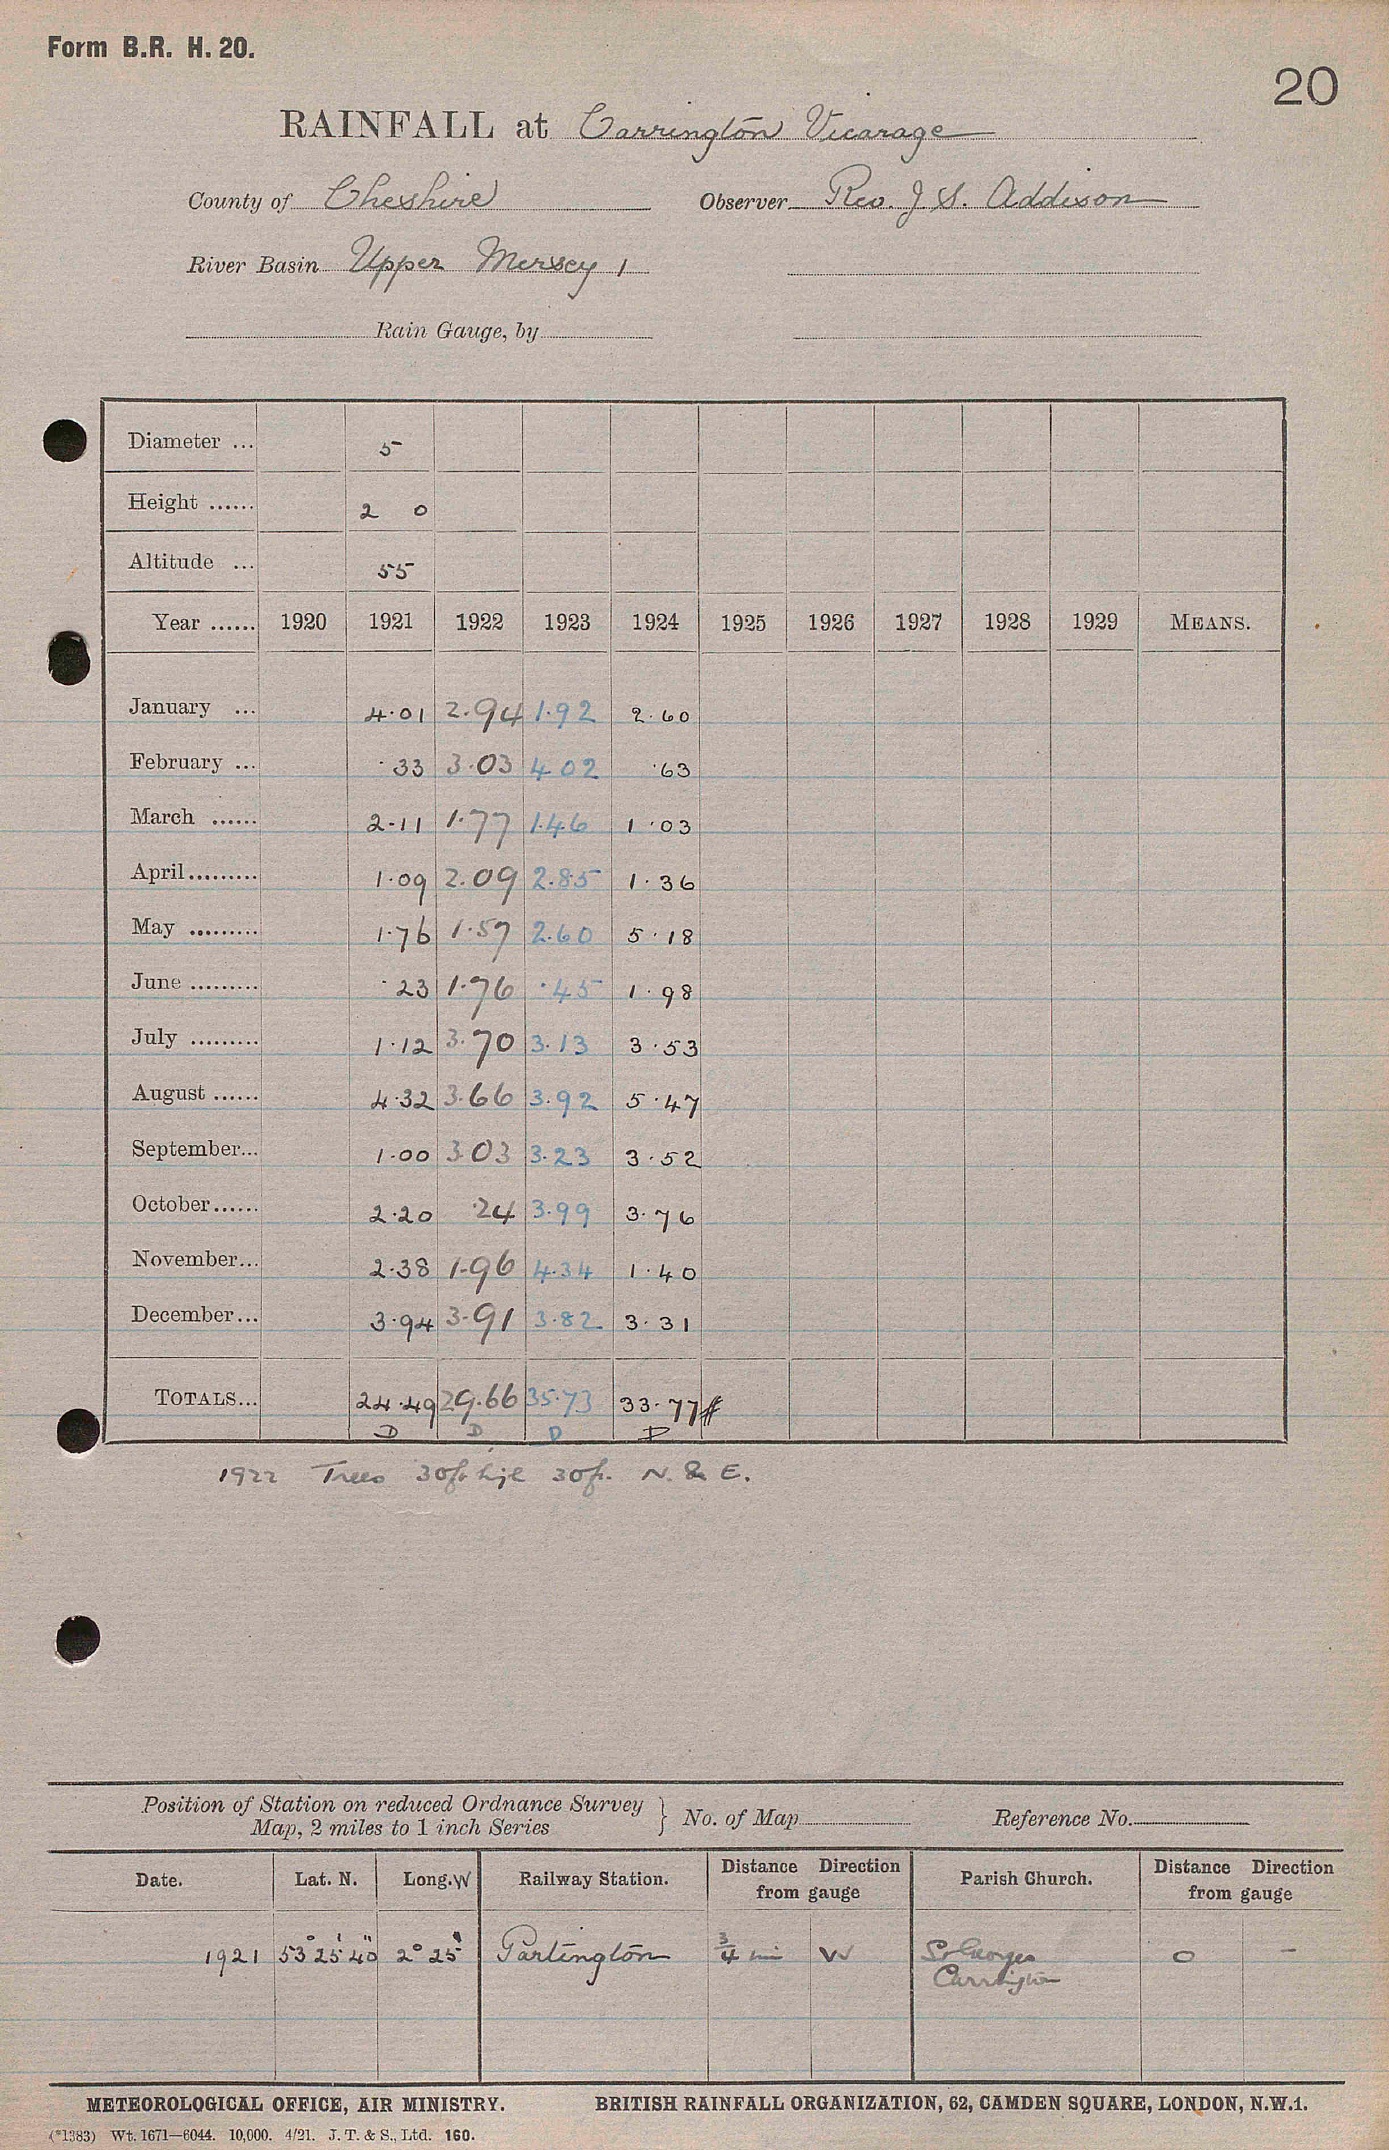 Form B.R. H. 20.
20
RAINFALL at Carrington Vicarage
County of Cheshire Observer Rev. J S. Addison
River Basin Upper Mersey 1
Rain Gauge, by
Diameter ... 5
Height ...... 2 0
Altitude ... 55
Year ...... 1920 1921 1922 1923 1924 1925 1926 1927 1928 1929 MEANS.
January ... 4.01 2.94 1.92 2.60
February ... .33 3.03 4 02 .63
March ...... 2.11 1.77 1.46 1.03
April ......... 1.09 2.09 2.85 1.36
May ......... 1.76 1.57 2.60 5.18
June ......... .23 1.76 .45 1.98
July ......... 1.12 3.70 3.13 3.53
August ...... 4.32 3.66 3.92 5.47
September... 1.00 3.03 3.23 3.52
October...... 2.20 .24 3.99 3.76
November... 2.38 1.96 4.34 1.40
December... 3.94 3.91 3.82 3.31
TOTALS... 24.49 29.66 35.73 33.77
D D D D
1922 Trees 30ft high 30ft. N. & E.
Position of Station on reduced Ordnance Survey } No. of Map Reference No.
Map, 2 miles to 1 inch Series
Date. Lat. N. Long. W Railway Station. Distance Direction Parish Church. Distance Direction
from gauge from gauge
1921 53° 25' 40" 2° 25' Partington 3/4 mi W St Georges 0 -
Carrington
METEOROLOGICAL OFFICE, AIR MINISTRY. BRITISH RAINFALL ORGANIZATION, 62, CAMDEN SQUARE, LONDON, N.W.1.
(*1383) Wt. 1671—6044. 10,000. 4/21. J. T. & S., Ltd. 160.